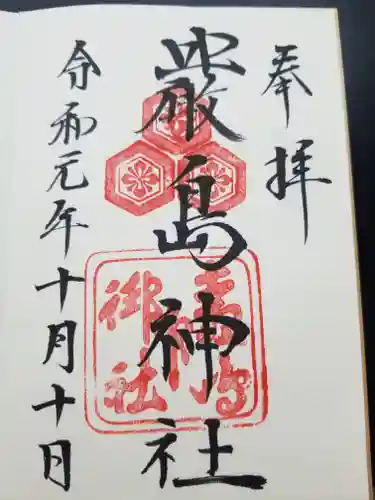 奉拝
嚴島神社
令和元年十月十日